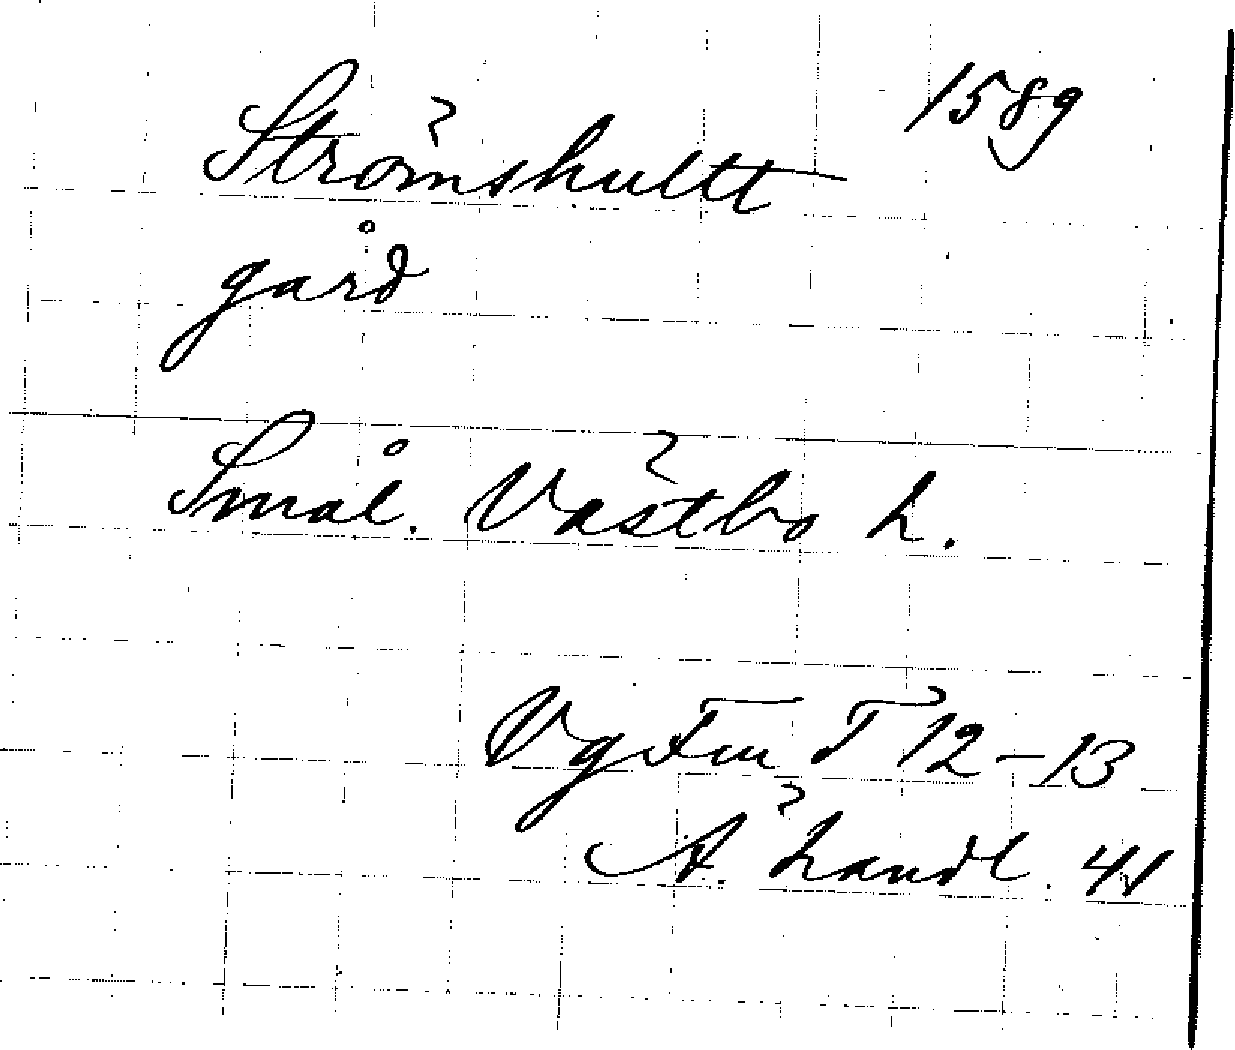 1589
Strömshultt
gård
Smål. Västbo h.
VgFmT 12-13
Ä. handl. 41